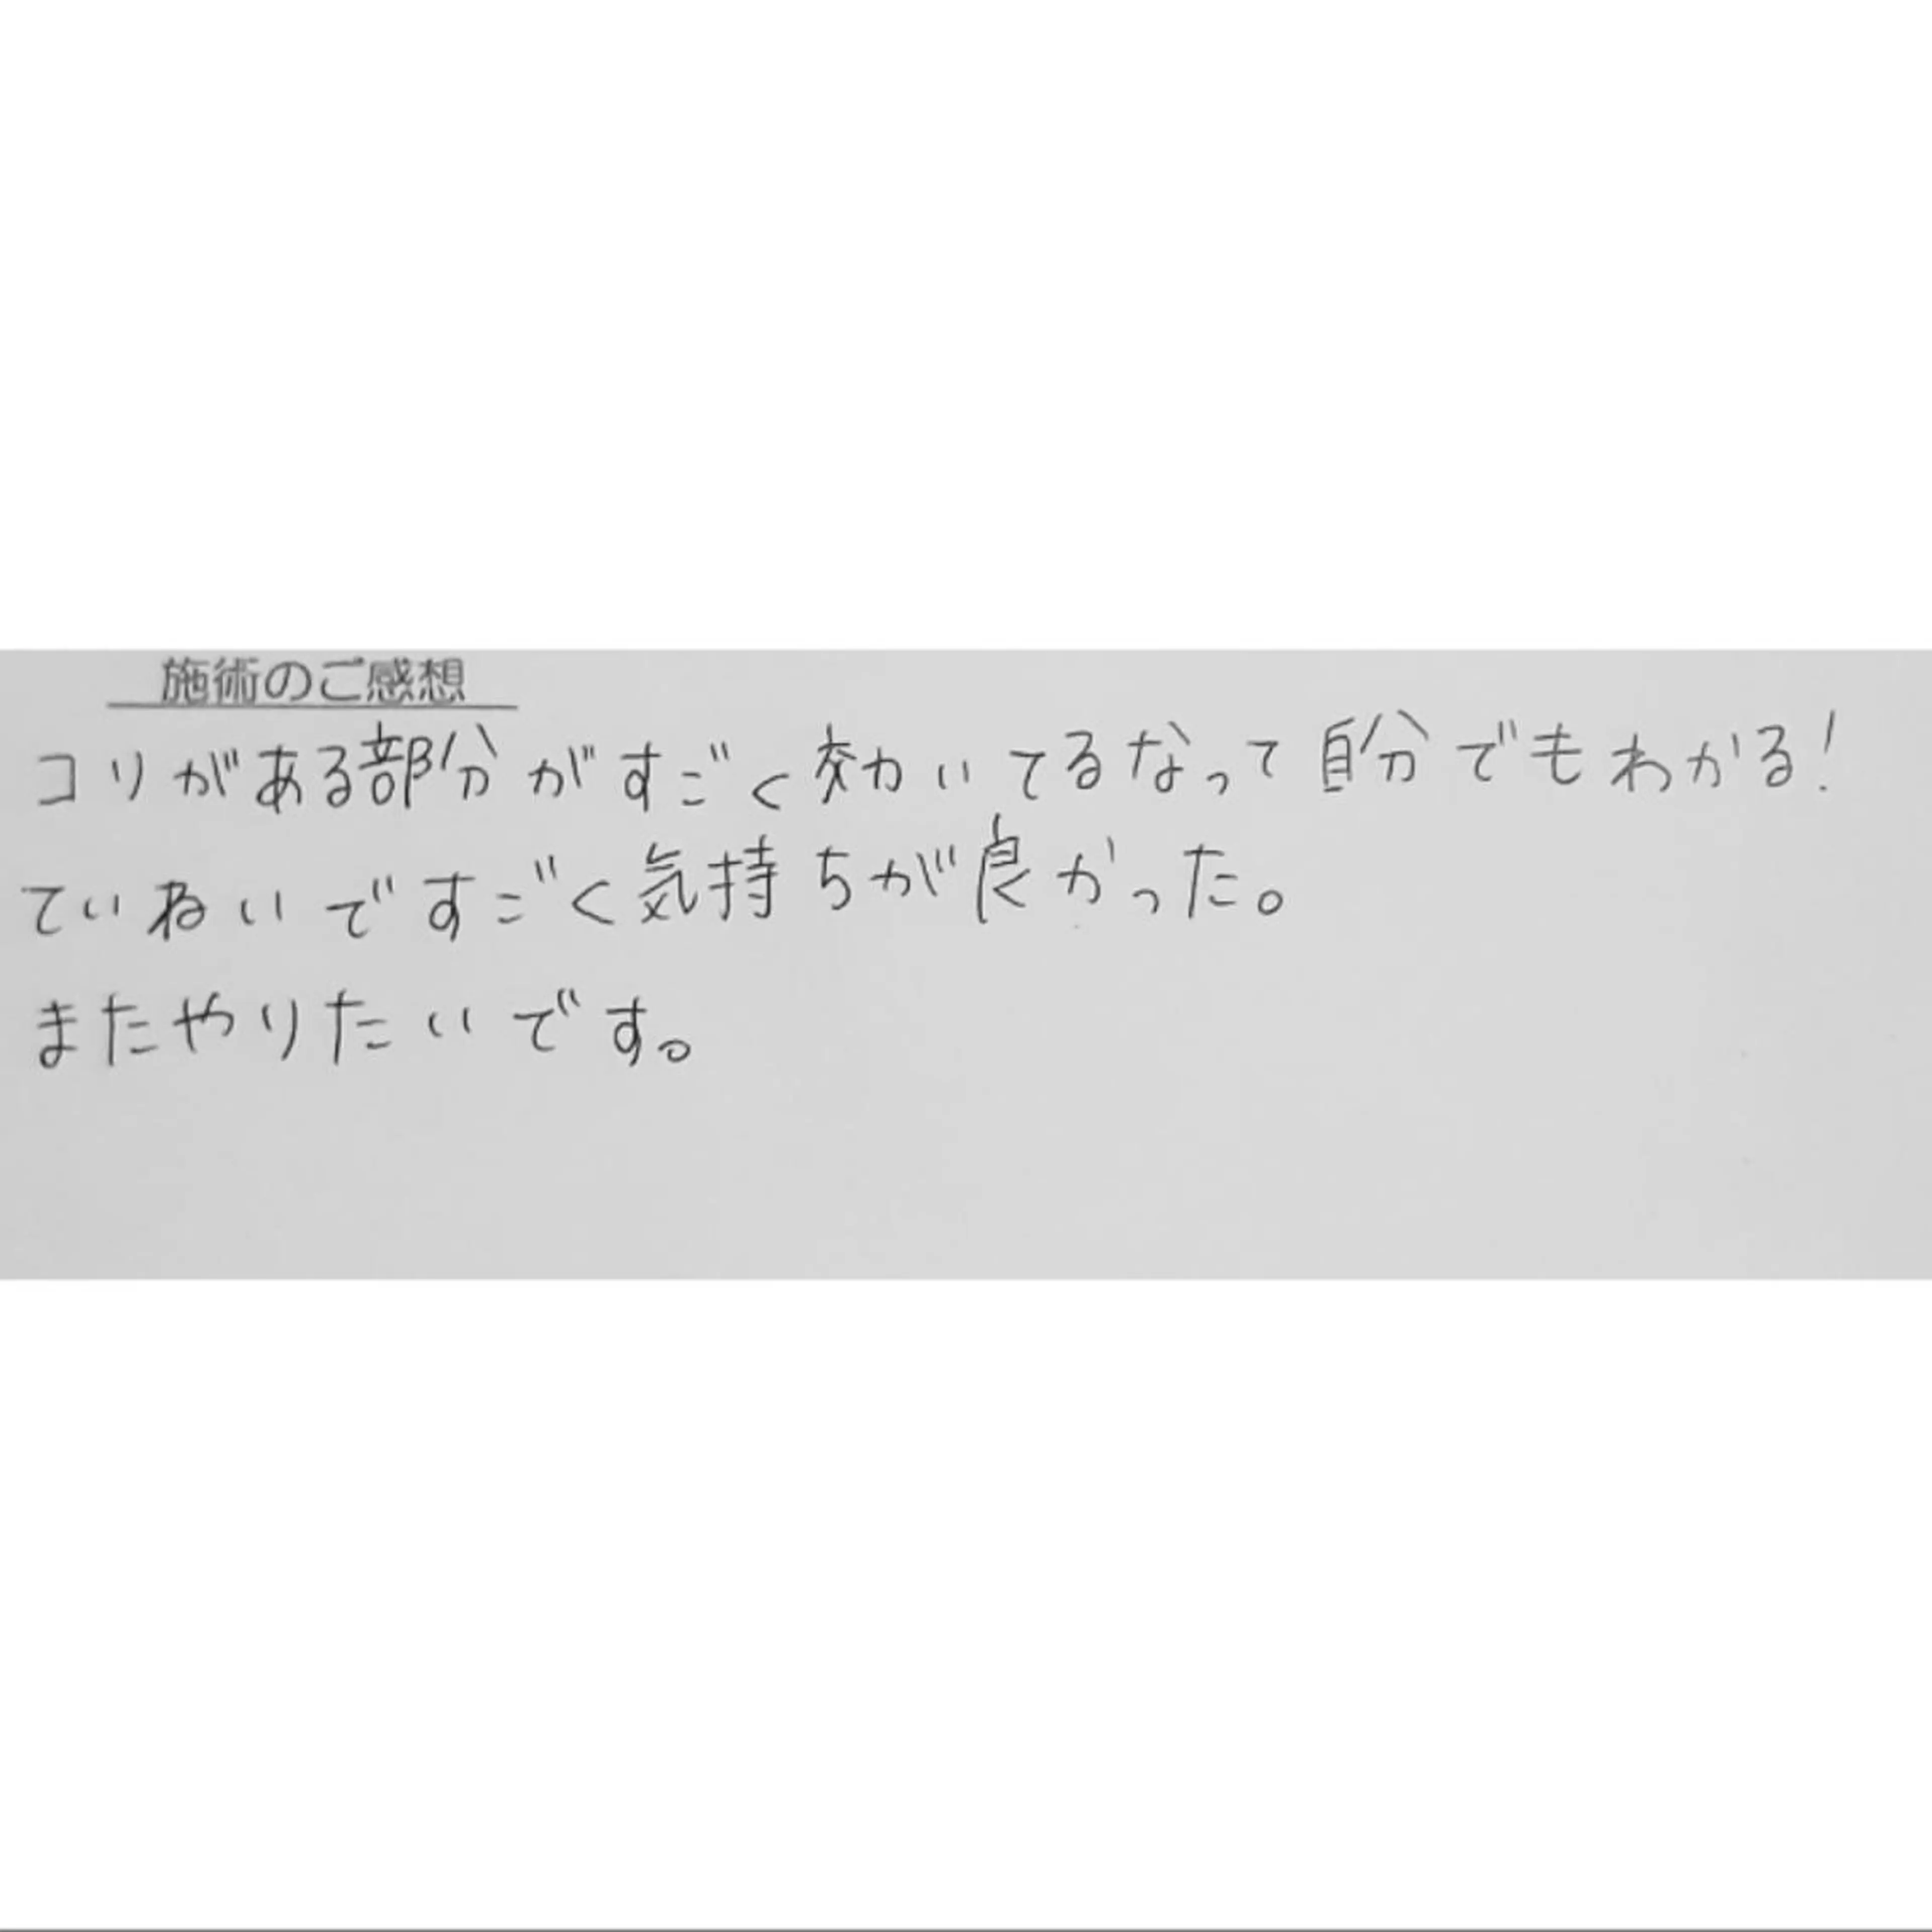 施術のご感想
コリがある部分がすごく効いてるなって自分でもわかる!
ていねいですごく気持ちが良かった。
またやりたいです。